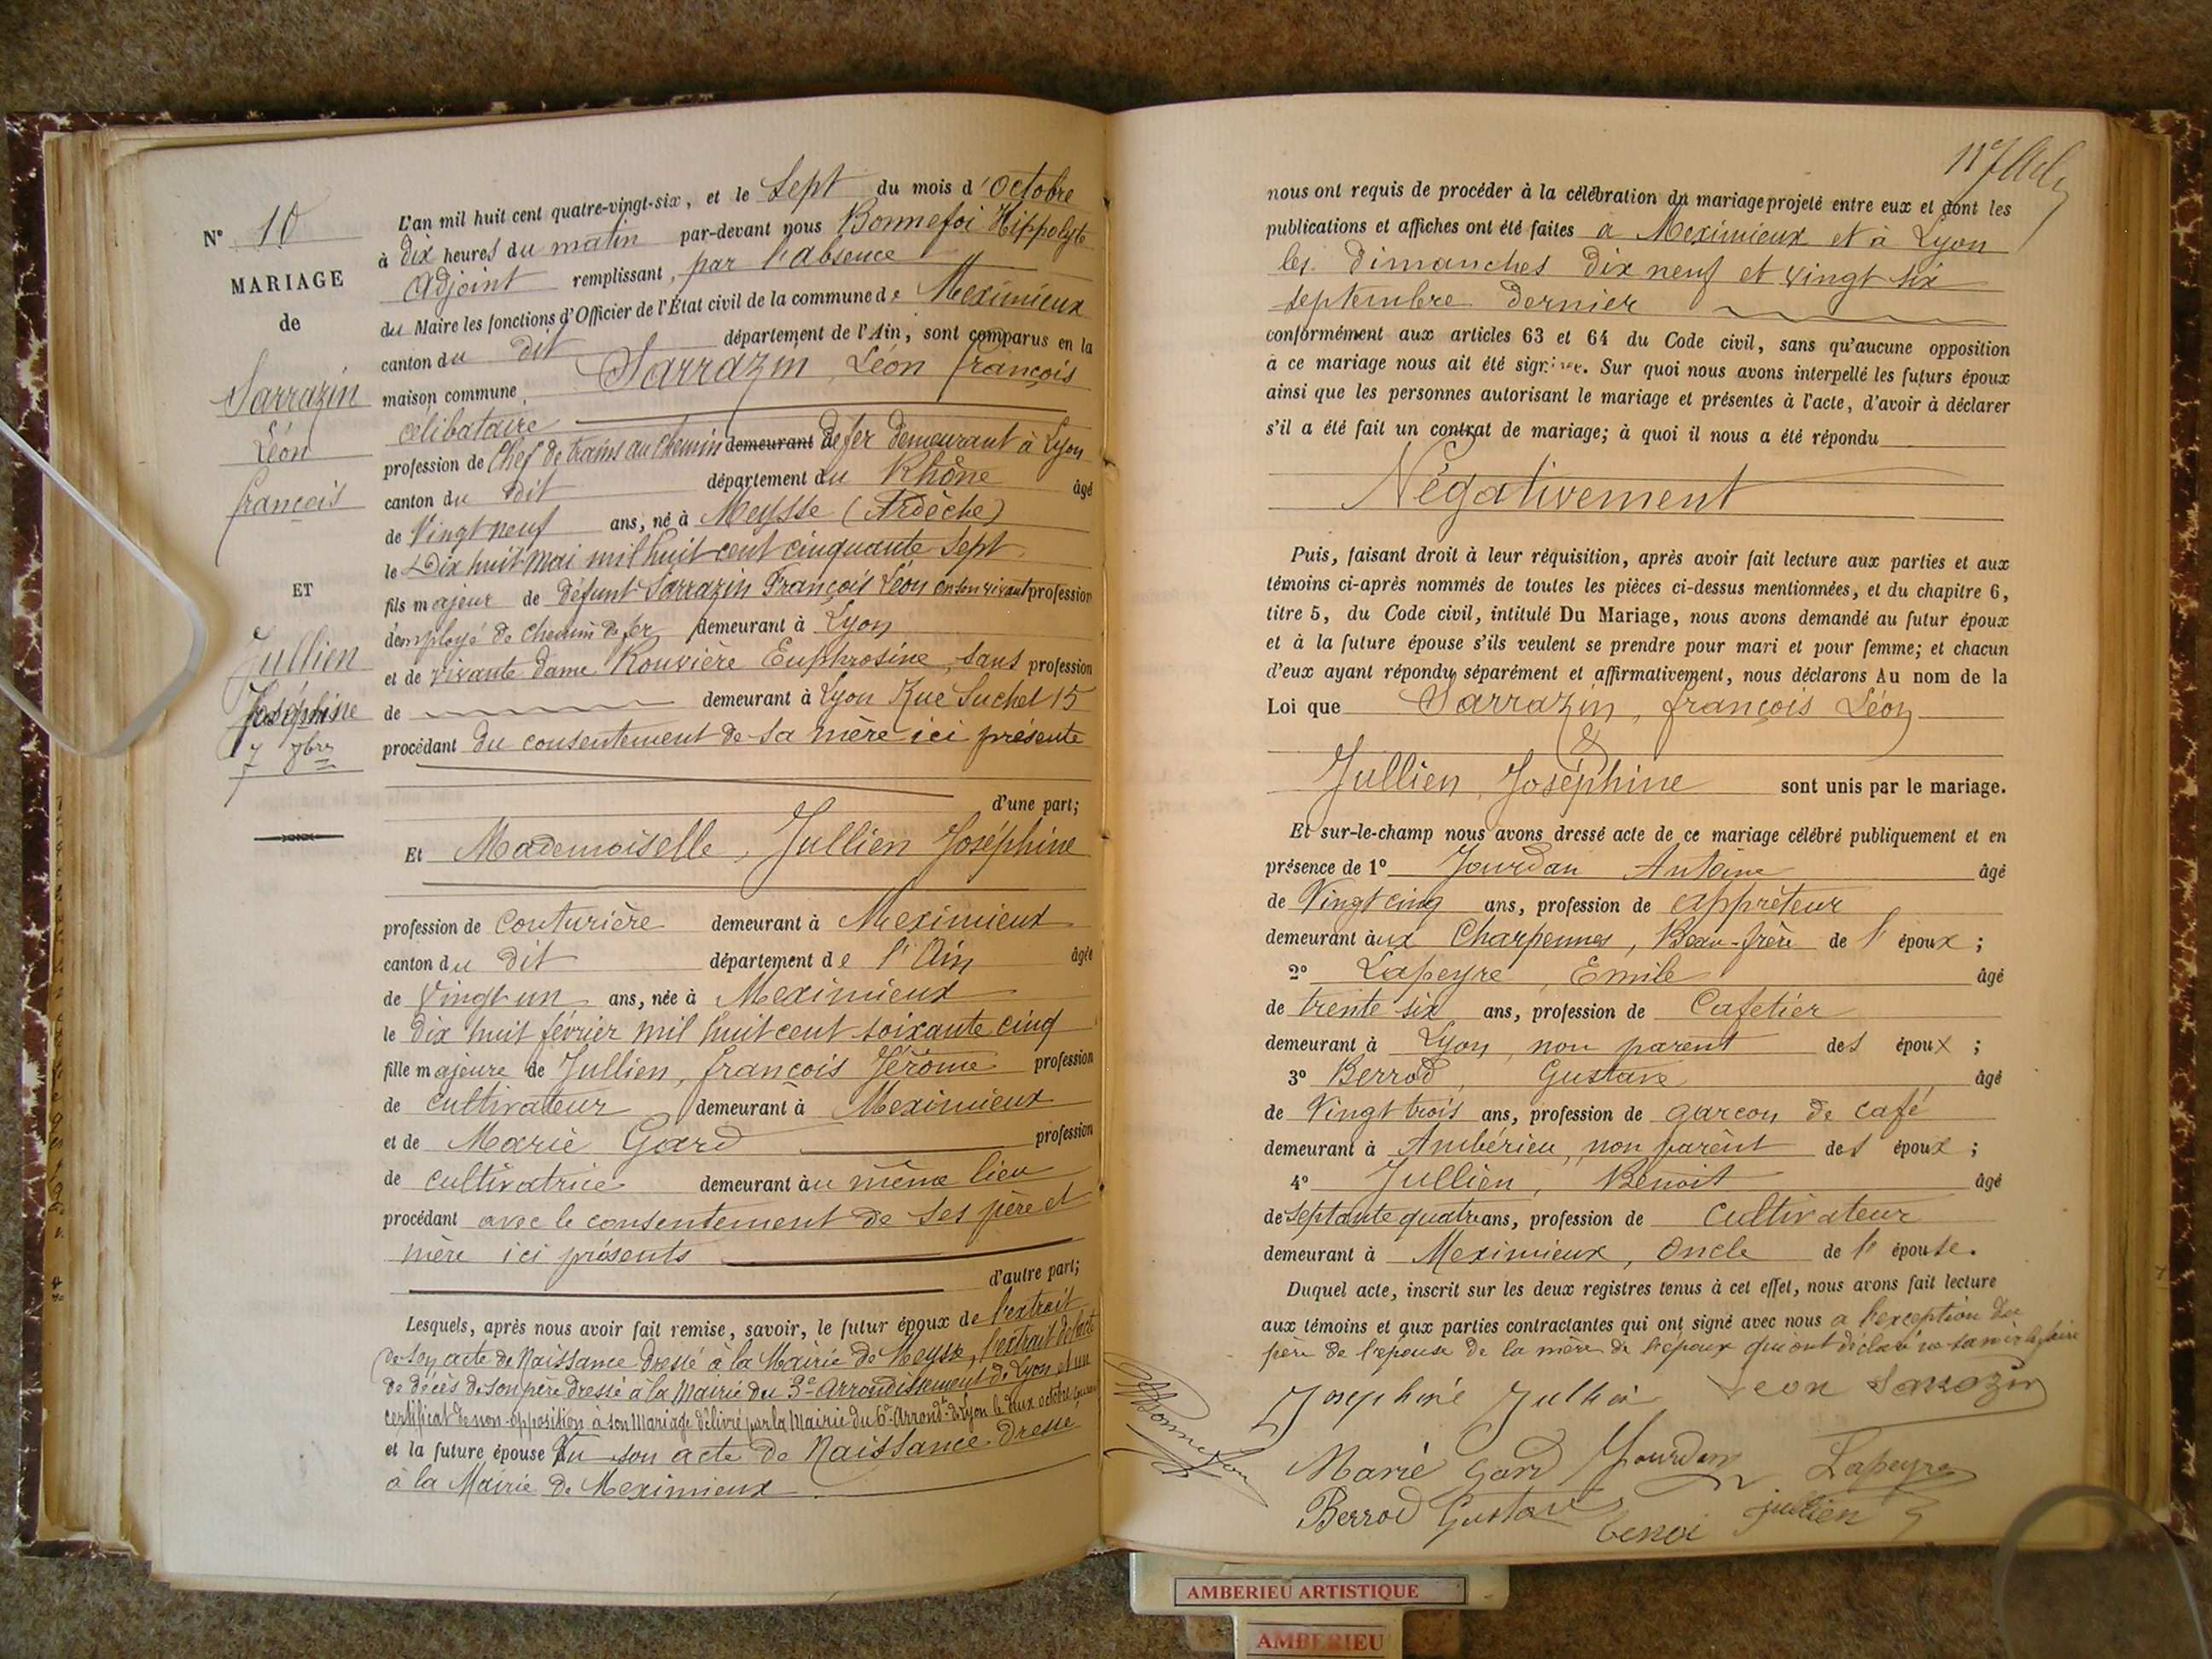 N° 10
MARIAGE
de
Sarrazin
Léon
françois
ET
Jullien
Joséphine
7 8bre
L'an mil huit cent quatre-vingt-six, et le Sept du mois d'Octobre
à dix heures du matin par-devant nous Bonnefoi Hippolyte
Adjoint remplissant, par l'absence
du Maire les fonctions d'Officier de l'État civil de la commune de Meximieux
canton du dit département de l'Ain, sont comparus en la
maison commune, Sarrazin Léon françois
célibataire
profession de Chef de trains au chemin demeurant de fer demeurant à Lyon
canton du dit département du Rhône âgé
de Vingt neuf ans, né à Meysse (Ardèche)
le Dix huit Mai mil huit cent cinquante sept
fils majeur de défunt Sarrazin François Léon en son vivant profession
d'employé de chemin de fer demeurant à Lyon
et de vivante dame Rouvière Euphrosine, sans profession
de demeurant à Lyon Rue Suchet 15
procédant du consentement de sa mère ici présente
d'une part;
Et Mademoiselle, Jullien Joséphine
profession de couturière demeurant à Meximieux
canton du dit département de l'Ain âgée
de Vingt un ans, née à Meximieux
le dix huit février mil huit cent soixante cinq
fille majeure de Jullien, françois Jérôme profession
de cultivateur demeurant à Meximieux
et de Marie Gard profession
de cultivatrice demeurant au même lieu
procédant avec le consentement de ses père et
mère ici présents
d'autre part;
Lesquels, après nous avoir fait remise, savoir, le futur époux de l'extrait
de son acte de Naissance dressé à la Mairie de Meysse, l'extrait de l'acte
de décès de son père dressé à la Mairie du 3e Arrondissement de Lyon et un
certificat de non-opposition à son Mariage délivré par la Mairie du 6e Arrondt de Lyon le deux octobre
et la future épouse du son acte de Naissance dressé
à la Mairie de Meximieux
nous ont requis de procéder à la célébration du mariage projeté entre eux et dont les
publications et affiches ont été faites a Meximieux et à Lyon
les dimanches dix neuf et vingt six
septembre dernier
conformément aux articles 63 et 64 du Code civil, sans qu'aucune opposition
à ce mariage nous ait été signifiée. Sur quoi nous avons interpellé les futurs époux
ainsi que les personnes autorisant le mariage et présentes à l'acte, d'avoir à déclarer
s'il a été fait un contrat de mariage; à quoi il nous a été répondu
Négativement
Puis, faisant droit à leur réquisition, après avoir fait lecture aux parties et aux
témoins ci-après nommés de toutes les pièces ci-dessus mentionnées, et du chapitre 6,
titre 5, du Code civil, intitulé Du Mariage, nous avons demandé au futur époux
et à la future épouse s'ils veulent se prendre pour mari et pour femme; et chacun
d'eux ayant répondu séparément et affirmativement, nous déclarons Au nom de la
Loi que Sarrazin, françois Léon
&
Jullien, Joséphine sont unis par le mariage.
Et sur-le-champ nous avons dressé acte de ce mariage célébré publiquement et en
présence de 1° Jourdan Antoine âgé
de Vingt cinq ans, profession de apprêteur
demeurant aux Charpennes, Beau-frère de l'époux;
2° Lapeyre, Emile âgé
de trente six ans, profession de Cafetier
demeurant à Lyon, non parent des époux;
3° Berrod, Gustave âgé
de Vingt trois ans, profession de garçon de café
demeurant à Ambérieu, non parent des époux;
4° Jullien, Benoit âgé
de septante quatre ans, profession de cultivateur
demeurant à Meximieux, Oncle de l'épouse.
Duquel acte, inscrit sur les deux registres tenus à cet effet, nous avons fait lecture
aux témoins et aux parties contractantes qui ont signé avec nous a l'exception du
père de l'épouse de la mère de l'époux qui ont déclaré ne savoir le faire
Josephine Jullien Leon Sarrazin
Marie Gard Jourdan Lapeyre
Berrod Gustave benoi jullien
AMBERIEU ARTISTIQUE
AMBERIEU